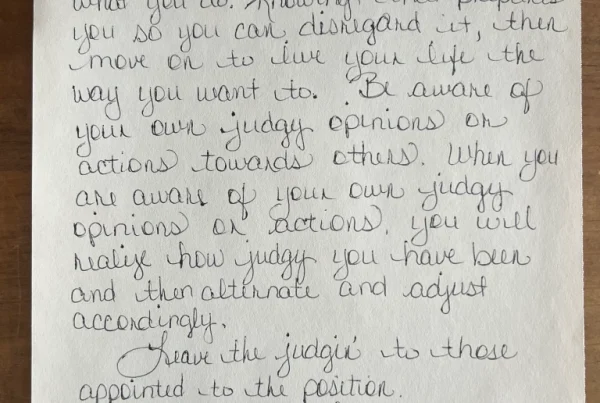 what you do. Knowing
you so you can disregard it, then
move on to live your life the
way you want to. Be aware of
your own judgy opinions or
actions towards others. When you
are aware of your own judgy
opinions or actions, you will
realize how judgy you have been
and then alternate and adjust
accordingly.
Leave the judgin' to those
appointed to the position.